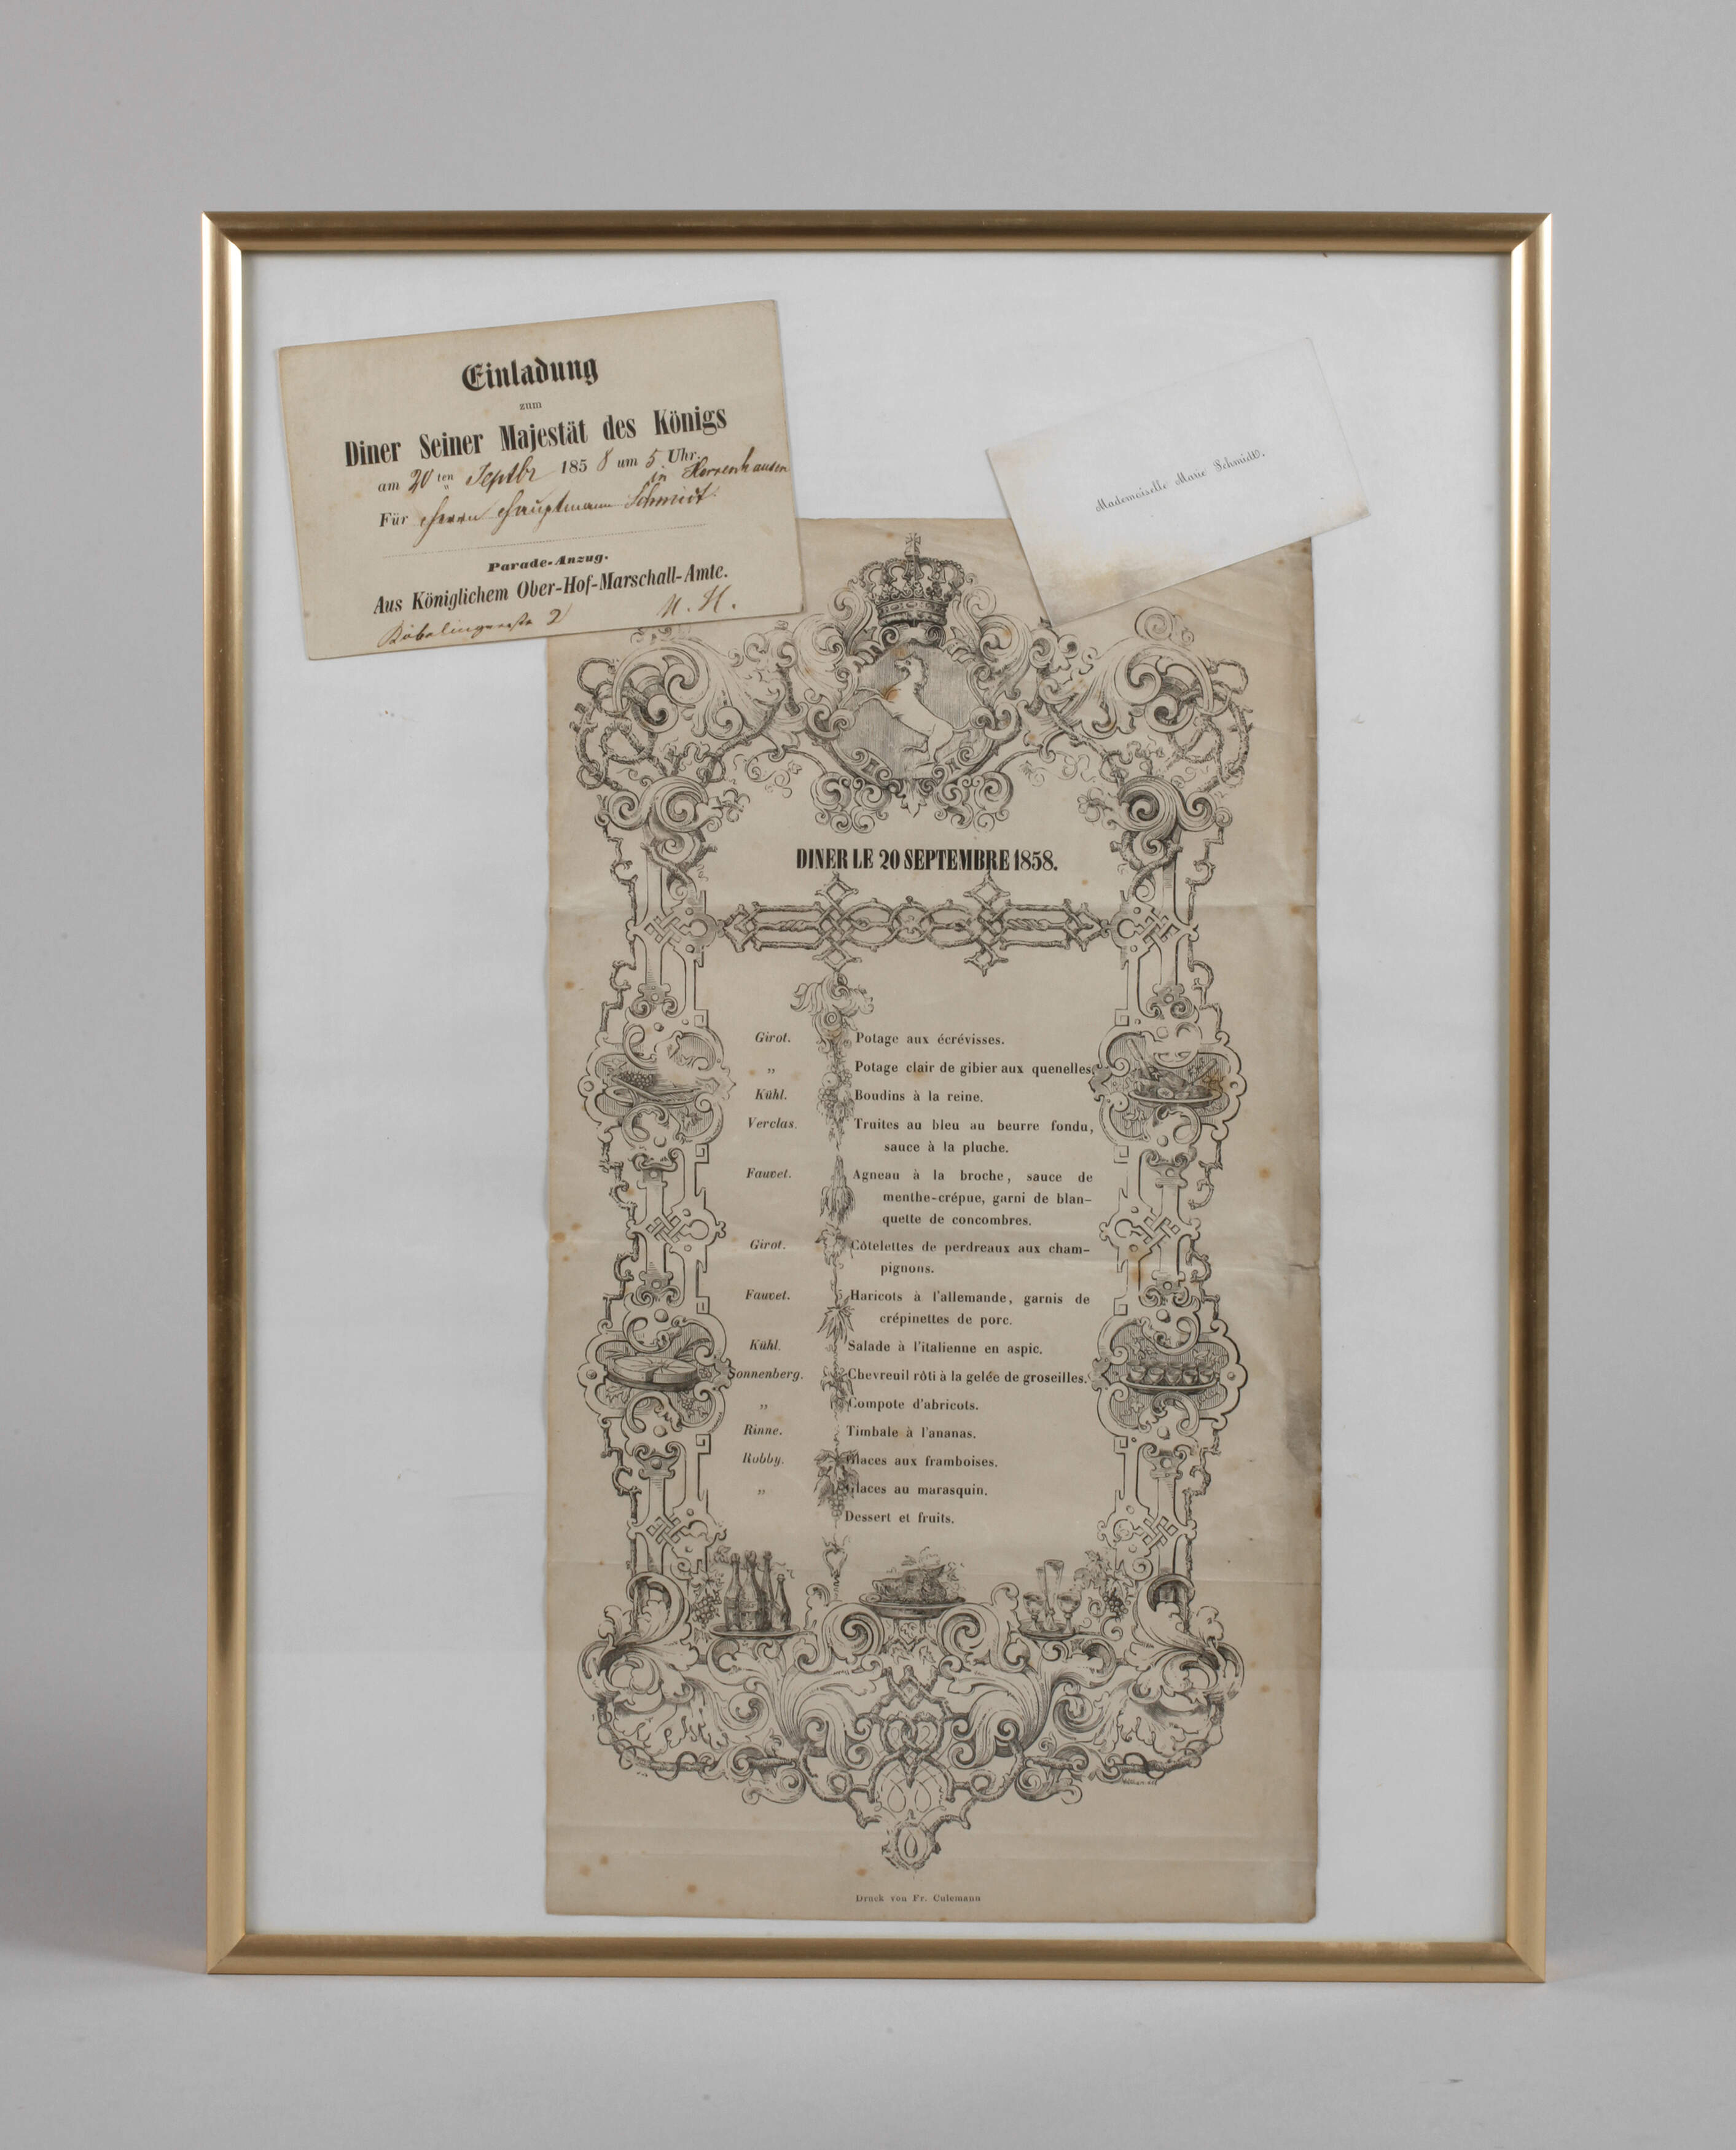 Einladung
zum
Diner Seiner Majestät des Königs
am 20 ten Septbr 1858 um 5 Uhr.
in Herrenhausen
Für Herrn Hauptmann Schmidt
Parade-Anzug.
Aus Königlichem Ober-Hof-Marschall-Amte.
2
Mademoiselle Marie Schmidt.
DINER LE 20 SEPTEMBRE 1858.
Girot. Potage aux écrévisses.
„ Potage clair de gibier aux quenelles.
Kühl. Boudins à la reine.
Verclas. Truites au bleu au beurre fondu,
sauce à la pluche.
Fauvet. Agneau à la broche, sauce de
menthe-crépue, garni de blan-
quette de concombres.
Girot. Côtelettes de perdreaux aux cham-
pignons.
Fauvet. Haricots à l'allemande, garnis de
crépinettes de porc.
Kühl. Salade à l'italienne en aspic.
Sonnenberg. Chevreuil rôti à la gelée de groseilles.
„ Compote d'abricots.
Rinne. Timbale à l'ananas.
Robby. Glaces aux framboises.
„ Glaces au marasquin.
Dessert et fruits.
Druck von Fr. Culemann